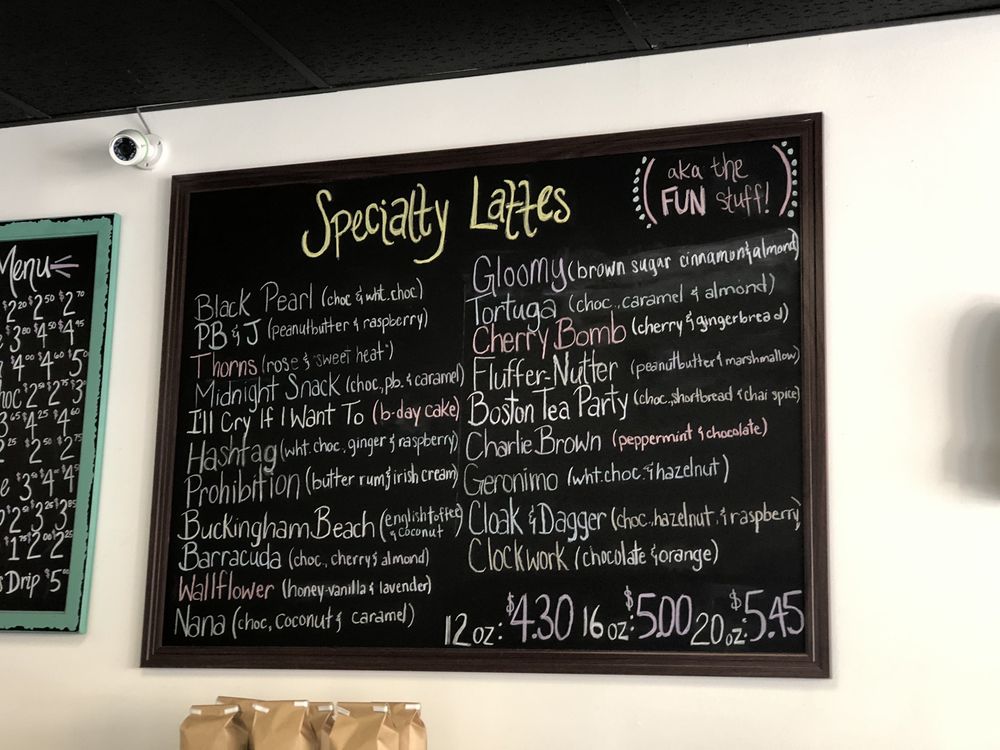 Menu
$2.20 $2.50 $2.70
Drip $5.00
Specialty Lattes
(aka the
FUN stuff!)
Black Pearl (choc & wht. choc)
PB & J (peanutbutter & raspberry)
Thorns (rose & "sweet heat")
Midnight Snack (choc, pb. & caramel)
I'll Cry If I Want To (b-day cake)
Hashtag (wht. choc, ginger & raspberry)
Prohibition (butter rum & irish cream)
Buckingham Beach (english toffee
& coconut)
Barracuda (choc., cherry & almond)
Wallflower (honey-vanilla & lavender)
Nana (choc, coconut & caramel)
Gloomy (brown sugar cinnamon & almond)
Tortuga (choc., caramel & almond)
Cherry Bomb (cherry & gingerbread)
Fluffer-Nutter (peanutbutter & marshmallow)
Boston Tea Party (choc., shortbread & chai spice)
Charlie Brown (peppermint & chocolate)
Geronimo (wht. choc. & hazelnut)
Cloak & Dagger (choc., hazelnut, & raspberry)
Clockwork (chocolate & orange)
12 oz: $4.30 16 oz: $5.00 20 oz: $5.45